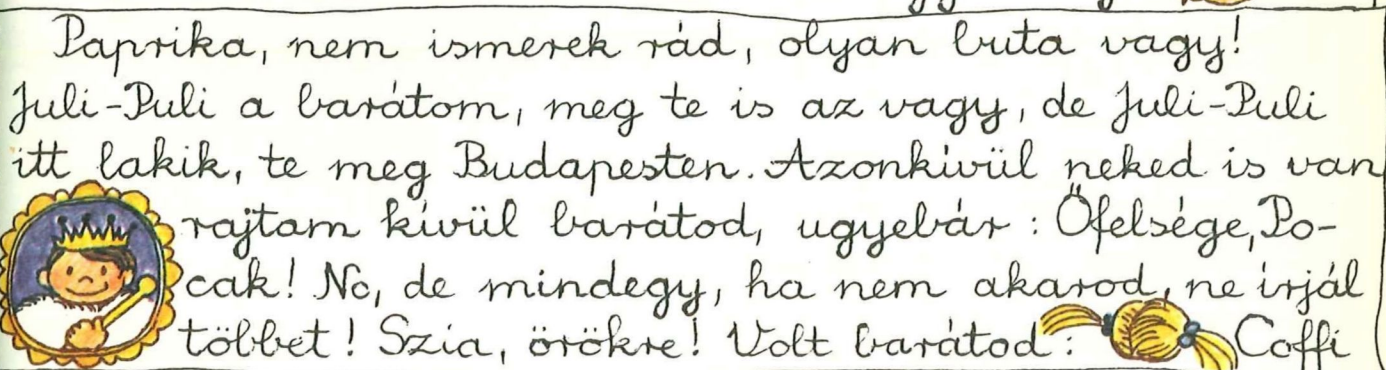 Paprika, nem ismerek rád, olyan buta vagy!
Juli-Puli a barátom, meg te is az vagy, de Juli-Puli
itt lakik, te meg Budapesten. Azonkivül neked is van
rajtam kívül barátod, ugyebár: Őfelsége, Po-
cak! No, de mindegy, ha nem akarod, ne írjál
többet! Szia, örökre! Volt barátod: Coffi